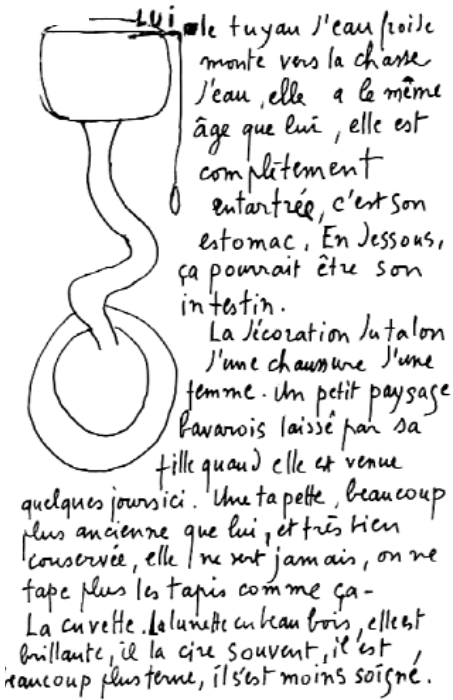 LUI. le tuyau d'eau froide
monte vers la chasse
d'eau, elle a le même
âge que lui, elle est
complètement
entartrée, c'est son
estomac. En dessous,
ça pourrait être son
intestin.
La décoration du talon
d'une chaussure d'une
femme. Un petit paysage
bavarois laissé par sa
fille quand elle est venue
quelques jours ici. Une tapette, beaucoup
plus ancienne que lui, et très bien
conservée, elle ne sert jamais, on ne
tape plus les tapis comme ça -
La cuvette. La lunette en beau bois, elle est
brillante, il la cire souvent, il est,
beaucoup plus terne, il s'est moins soigné.